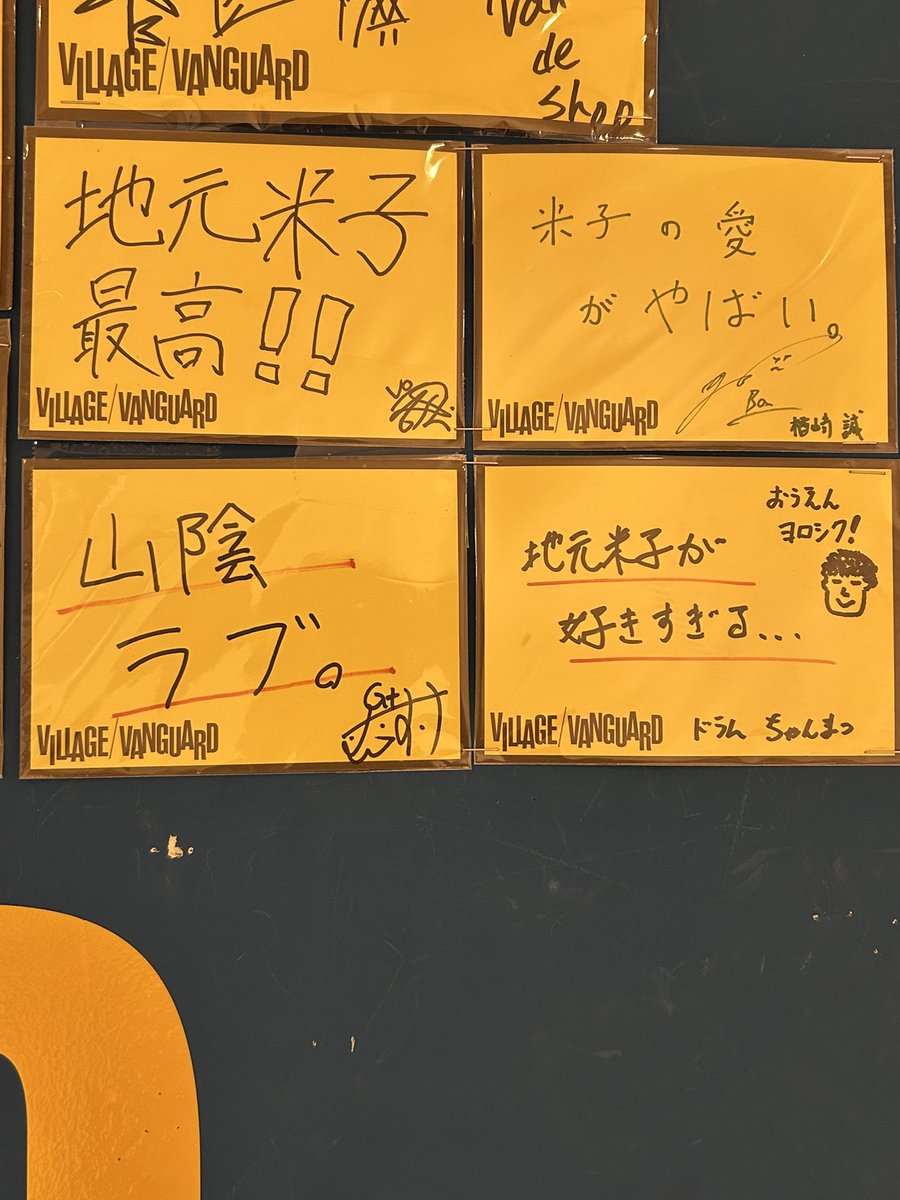 Van
de
shop
VILLAGE/VANGUARD
地元米子
最高!!
VILLAGE/VANGUARD
Vo
米子の愛
がやばい。
VILLAGE/VANGUARD
Ba
楢崎 誠
山陰
ラブ。
VILLAGE/VANGUARD
Gt
おうえん
ヨロシク!
地元米子が
好きすぎる...
VILLAGE/VANGUARD
ドラム ちゃんまつ